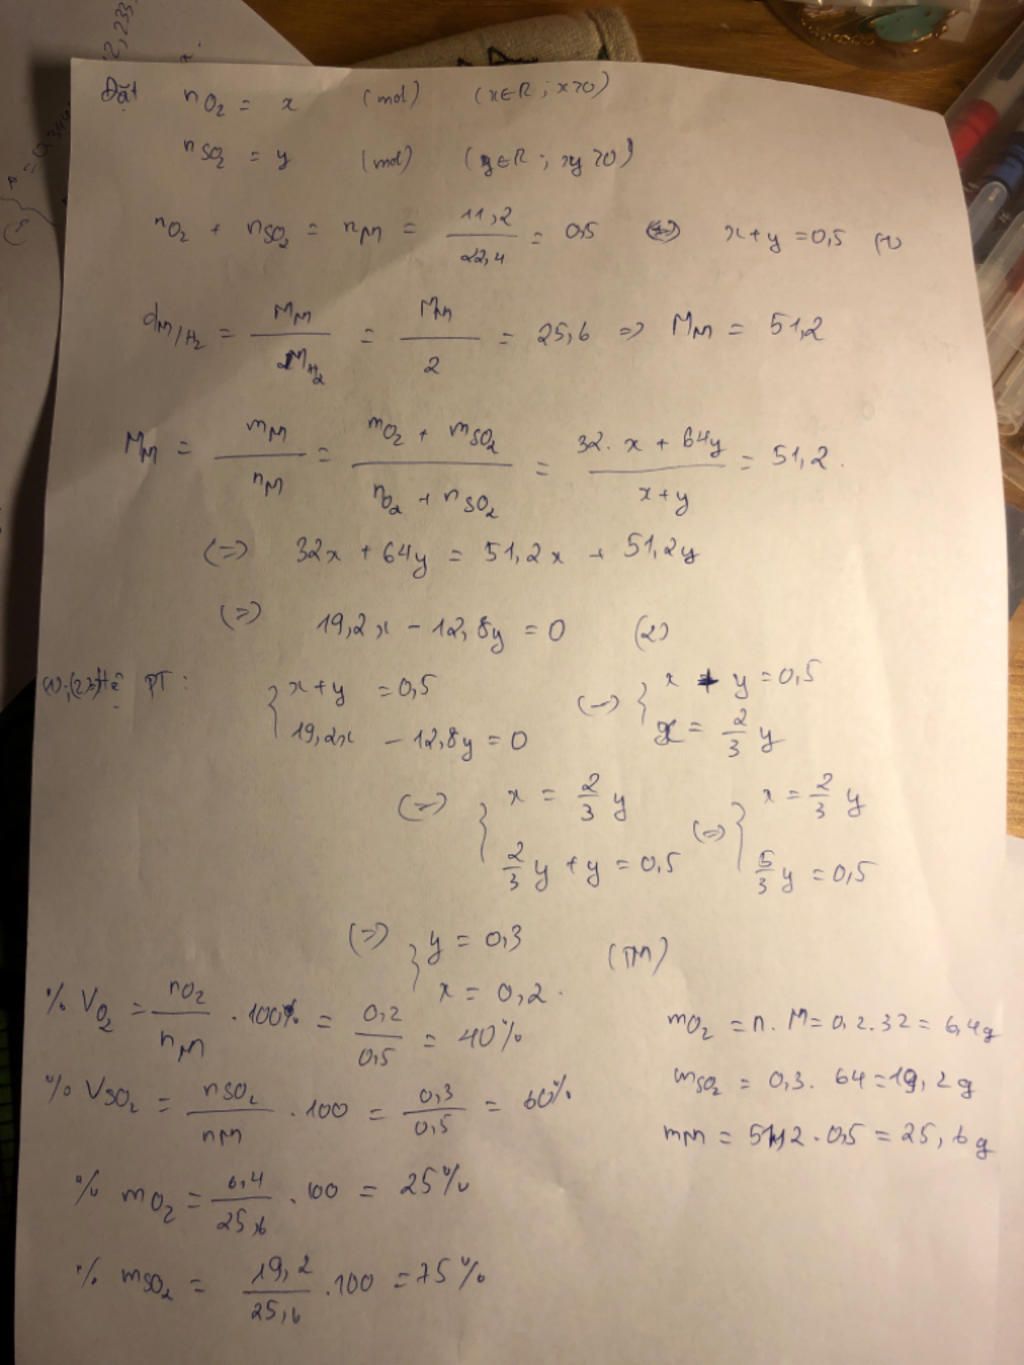 Đặt nO2 = x (mol) (x∈R ; x>0)
nSO2 = y (mol) (y∈R ; y>0)
nO2 + nSO2 = nM = 11,2/22,4 = 0,5 <=> x+y = 0,5 (1)
dM/H2 = MM/MH2 = MM/2 = 25,6 => MM = 51,2
MM = mM/nM = (mO2 + mSO2)/(nO2 + nSO2) = (32.x + 64y)/(x+y) = 51,2.
(=>) 32x + 64y = 51,2x + 51,2y
(=>) 19,2x - 12,8y = 0 (2)
(1);(2)=> Hệ PT : { x+y = 0,5 ; 19,2x - 12,8y = 0 (=>) { x + y = 0,5 ; x = 2/3 y
(=>) { x = 2/3 y ; 2/3 y + y = 0,5 (=>) { x = 2/3 y ; 5/3 y = 0,5
(=>) { y = 0,3 ; x = 0,2. (TM)
% VO2 = nO2/nM . 100% = 0,2/0,5 = 40%
% VSO2 = nSO2/nM . 100 = 0,3/0,5 = 60%
% mO2 = 6,4/25,6 . 100 = 25%
% mSO2 = 19,2/25,6 . 100 = 75%
mO2 = n. M = 0,2.32 = 6,4g
mSO2 = 0,3. 64 = 19,2g
mM = 51,2 . 0,5 = 25,6g